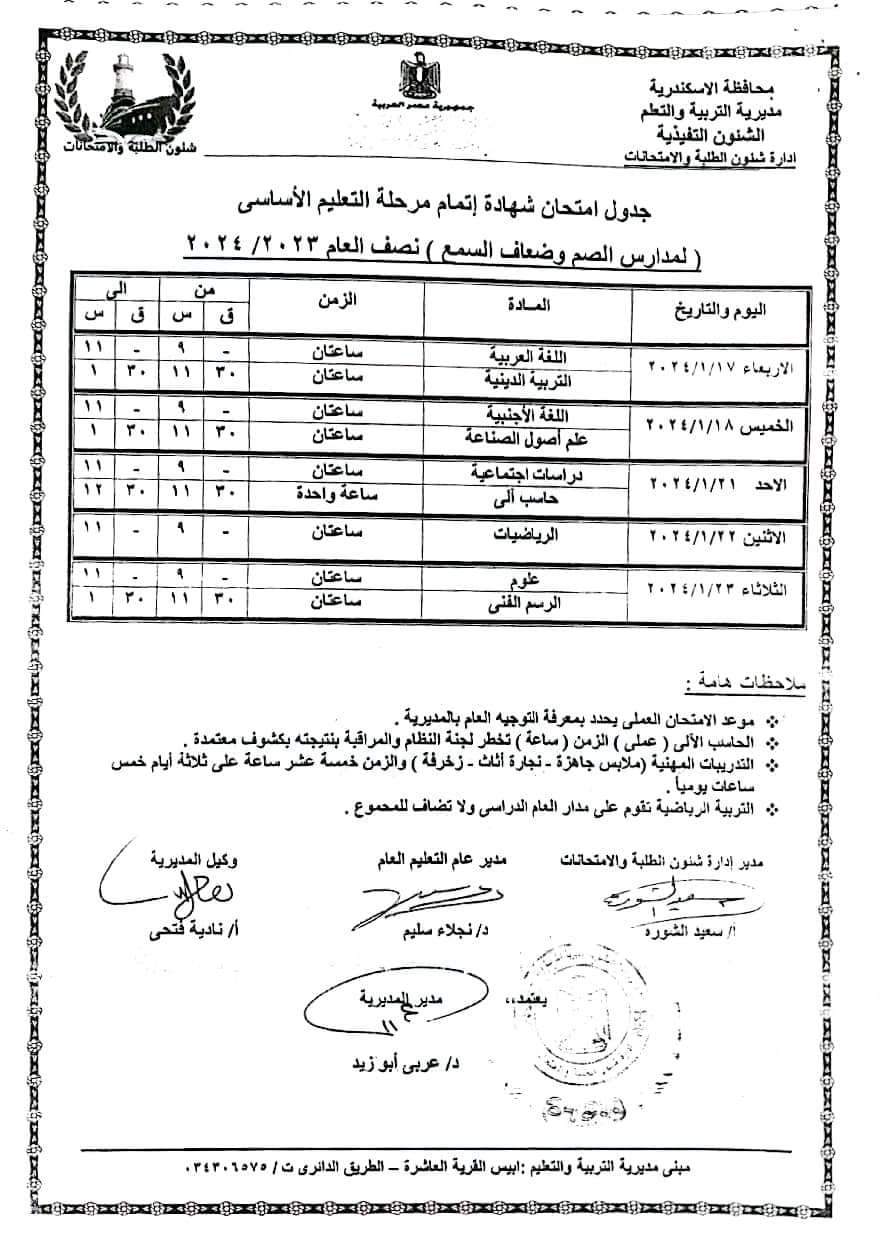 محافظة الاسكندرية
مديرية التربية والتعلم
الشئون التفيذية
ادارة شئون الطلبة والامتحانات
جمهورية مصر العربية
شئون الطلبة والامتحانات
جدول امتحان شهادة إتمام مرحلة التعليم الأساسى
( لمدارس الصم وضعاف السمع ) نصف العام ٢٠٢٣/ ٢٠٢٤
اليوم والتاريخ المادة الزمن من الى
ق س ق س
الاربعاء ٢٠٢٤/١/١٧ اللغة العربية ساعتان - ٩ - ١١
التربية الدينية ساعتان ٣٠ ١١ ٣٠ ١
الخميس ٢٠٢٤/١/١٨ اللغة الأجنبية ساعتان - ٩ - ١١
علم أصول الصناعة ساعتان ٣٠ ١١ ٣٠ ١
الاحد ٢٠٢٤/١/٢١ دراسات اجتماعية ساعتان - ٩ - ١١
حاسب ألى ساعة واحدة ٣٠ ١١ ٣٠ ١٢
الاثنين ٢٠٢٤/١/٢٢ الرياضيات ساعتان - ٩ - ١١
الثلاثاء ٢٠٢٤/١/٢٣ علوم ساعتان - ٩ - ١١
الرسم الفنى ساعتان ٣٠ ١١ ٣٠ ١
ملاحظات هامة :
❖ موعد الامتحان العملى يحدد بمعرفة التوجيه العام بالمديرية .
❖ الحاسب الألى ( عملى ) الزمن ( ساعة ) تخطر لجنة النظام والمراقبة بنتيجته بكشوف معتمدة .
❖ التدريبات المهنية (ملابس جاهزة - نجارة أثاث - زخرفة ) والزمن خمسة عشر ساعة على ثلاثة أيام خمس
ساعات يومياً .
❖ التربية الرياضية تقوم على مدار العام الدراسى ولا تضاف للمجموع .
مدير إدارة شئون الطلبة والامتحانات مدير عام التعليم العام وكيل المديرية
أ/ سعيد الشوره د/ نجلاء سليم أ/ نادية فتحى
يعتمد،،
مدير المديرية
د/ عربى أبو زيد
مبنى مديرية التربية والتعليم :ابيس القرية العاشرة – الطريق الدائرى ت / ٠٣٤٣٠٦٥٧٥